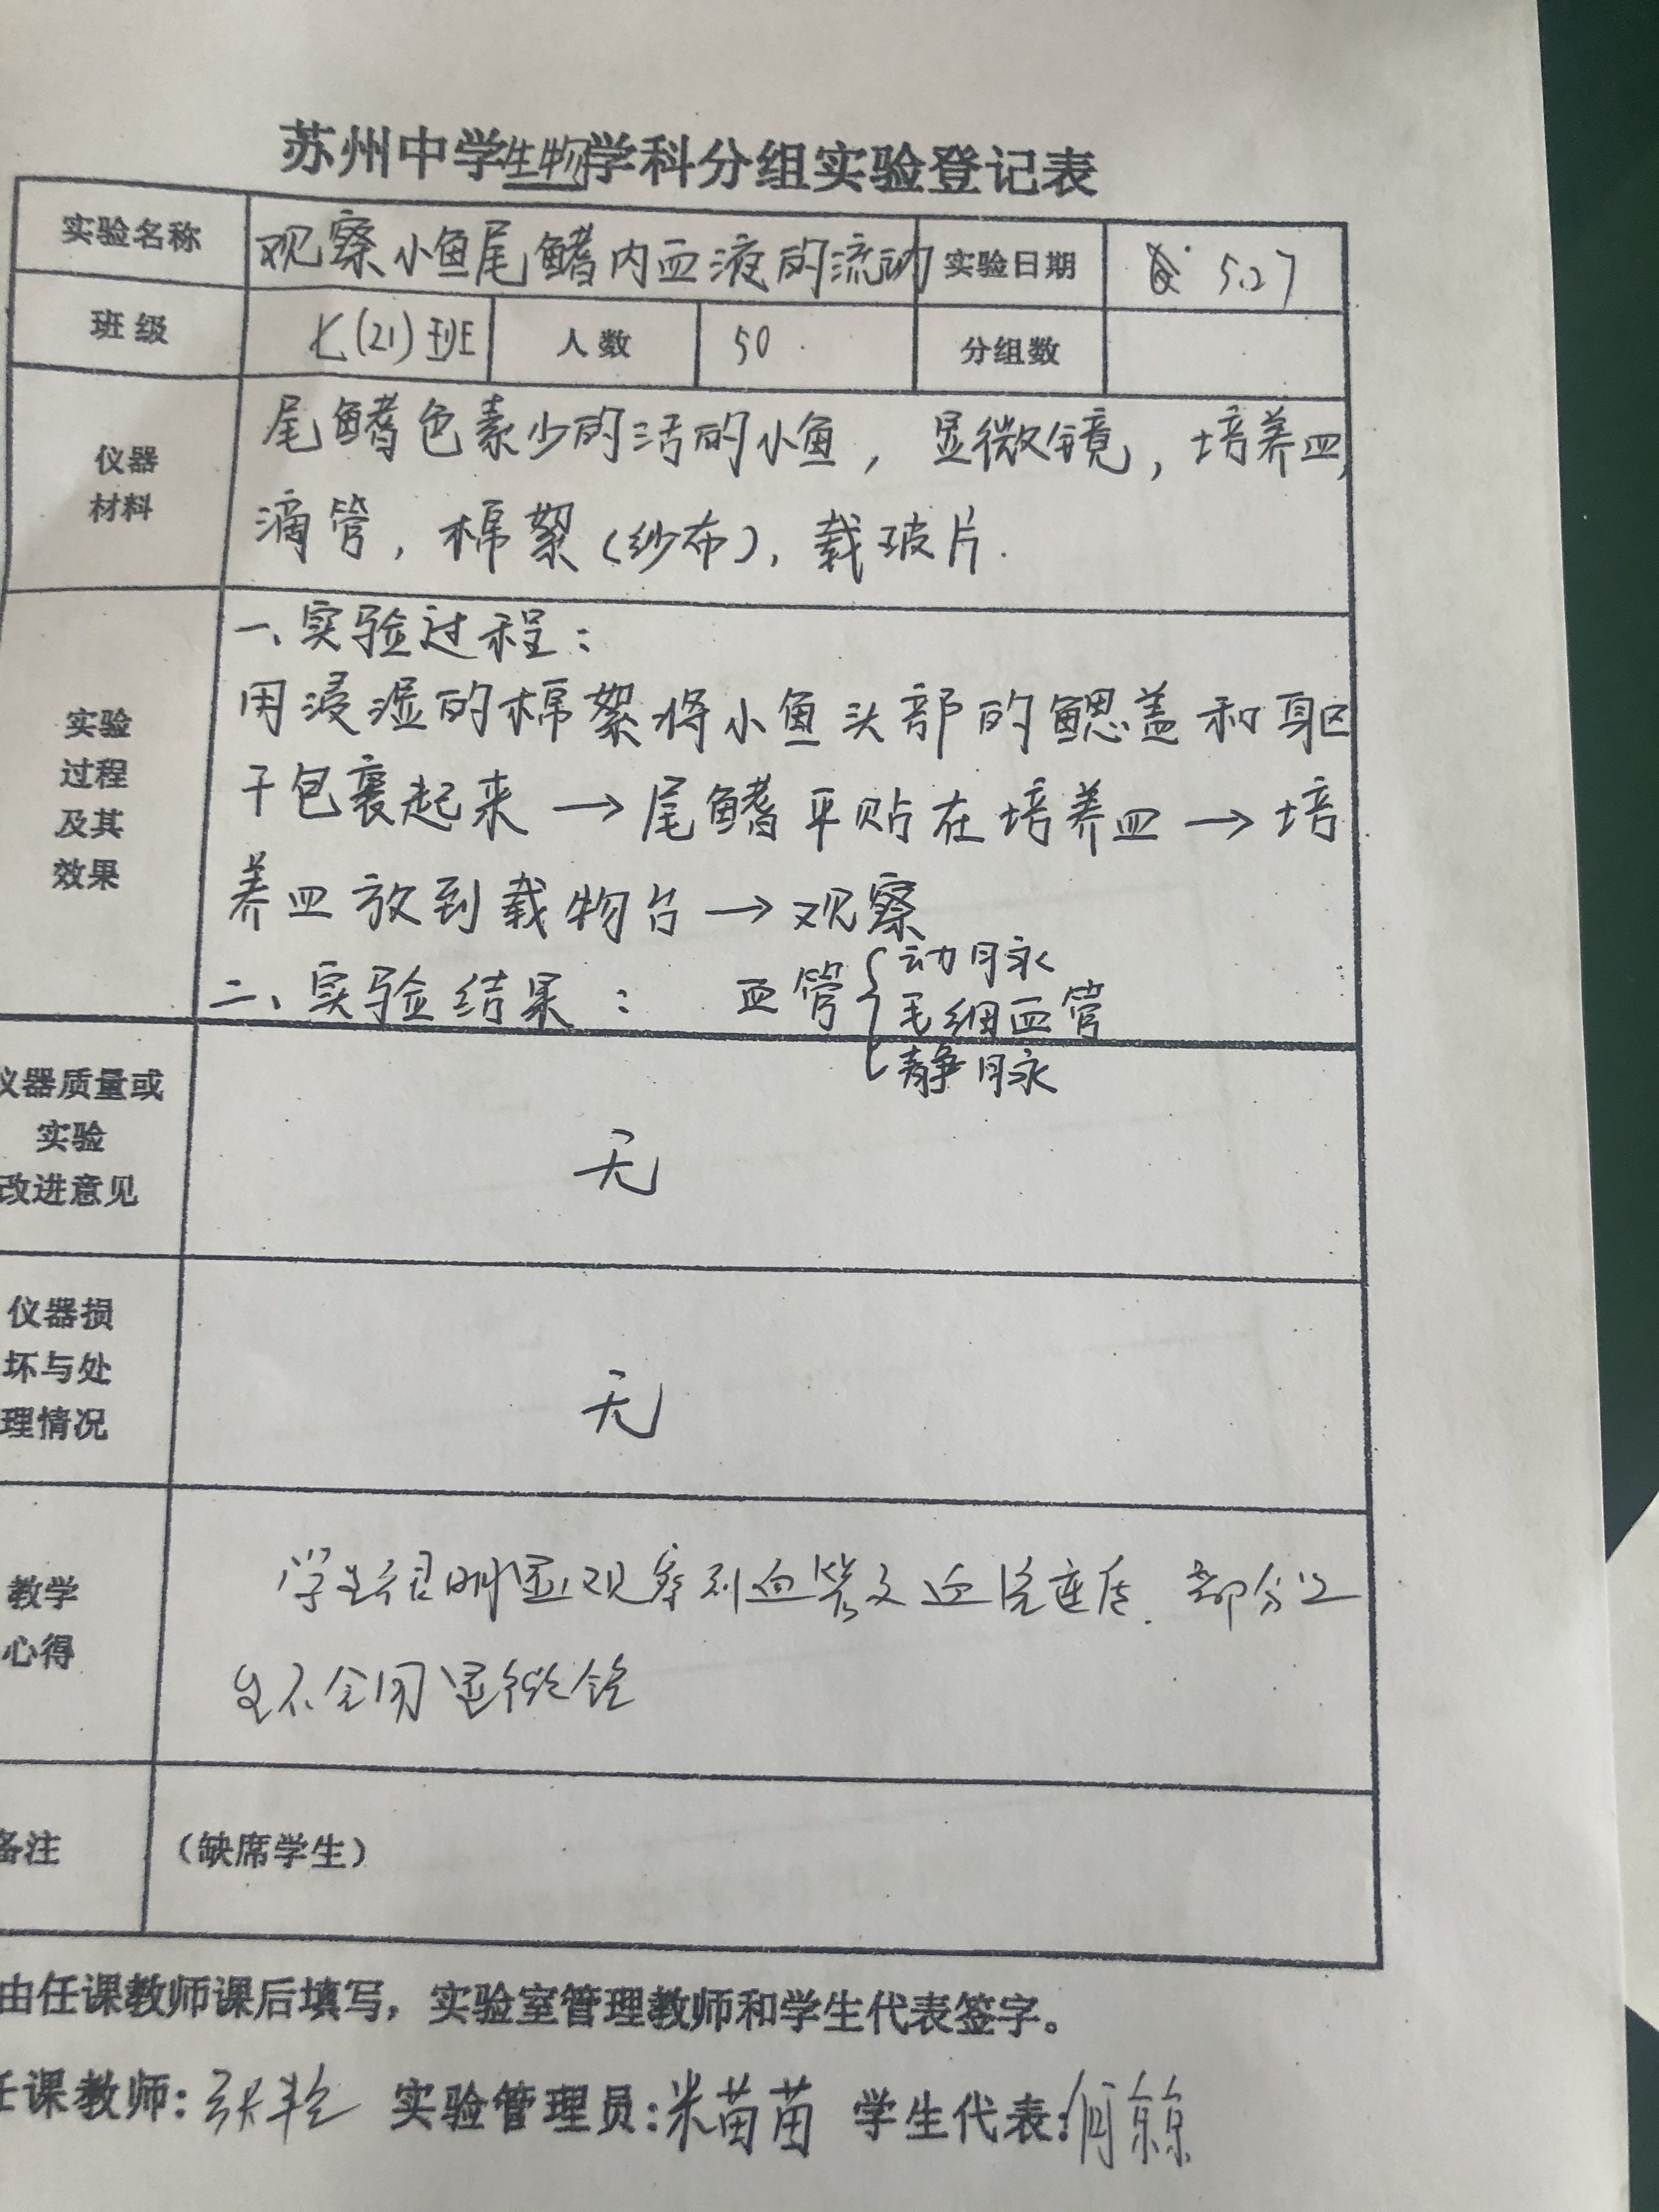 苏州中学生物学科分组实验登记表
实验名称 观察小鱼尾鳍内血液的流动 实验日期 5.27
班级 七(21)班 人数 50 分组数
仪器
材料
尾鳍色素少的活的小鱼，显微镜，培养皿，
滴管，棉絮(纱布)，载玻片.
实验
过程
及其
效果
一、实验过程：
用浸湿的棉絮将小鱼头部的鳃盖和躯
干包裹起来→尾鳍平贴在培养皿→培
养皿放到载物台→观察
二、实验结果： 血管{动脉
毛细血管
静脉
仪器质量或
实验
改进意见
无
仪器损
坏与处
理情况
无
教学
心得
学生很明显观察到血管及血流速度. 部分学
生不会用显微镜
备注 （缺席学生）
由任课教师课后填写，实验室管理教师和学生代表签字。
任课教师: 张 实验管理员:米苗苗 学生代表:何